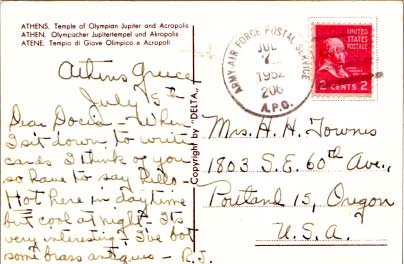 ATHENS. Temple of Olympian Jupiter and Acropolis
ATHEN. Olympischer Jupitertempel und Akropolis
ATENE. Tempio di Giave Olimpico e Acropoli
Athens Greece
July 5th
Dear Docia - When
I sit down to write
cards I think of you
so have to say Hello -
Hot here in daytime
but cool at night - It's
very interesting - I've bot
some brass antiques - R.J.
Copyright by "DELTA"
ARMY-AIR FORCE POSTAL SERVICE
JUL
7
1952
206
A.P.O.
UNITED
STATES
POSTAGE
2 CENTS 2
Mrs. H. H. Townes
1803 S.E. 60th Ave.,
Portland 15, Oregon
U.S.A.